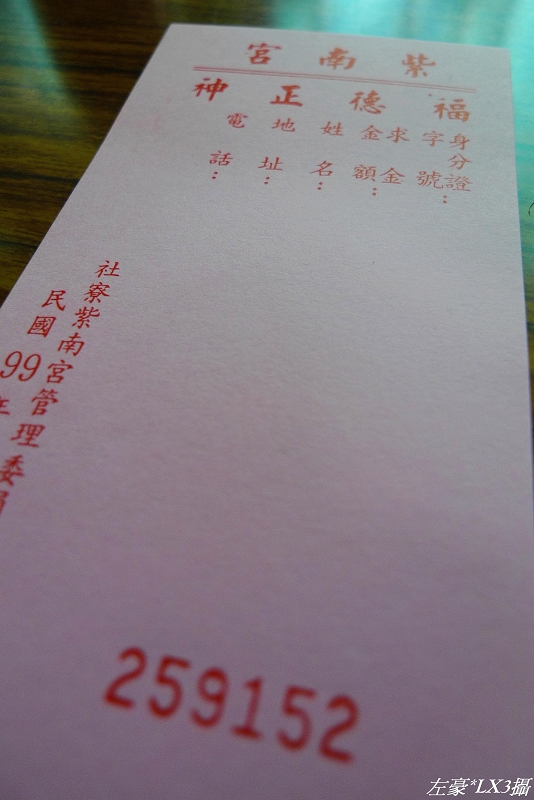 紫南宮
福德正神
身分證
字號：
求金
金額：
姓名：
地址：
電話：
社寮紫南宮管理委員
民國99年
259152
左豪*LX3攝